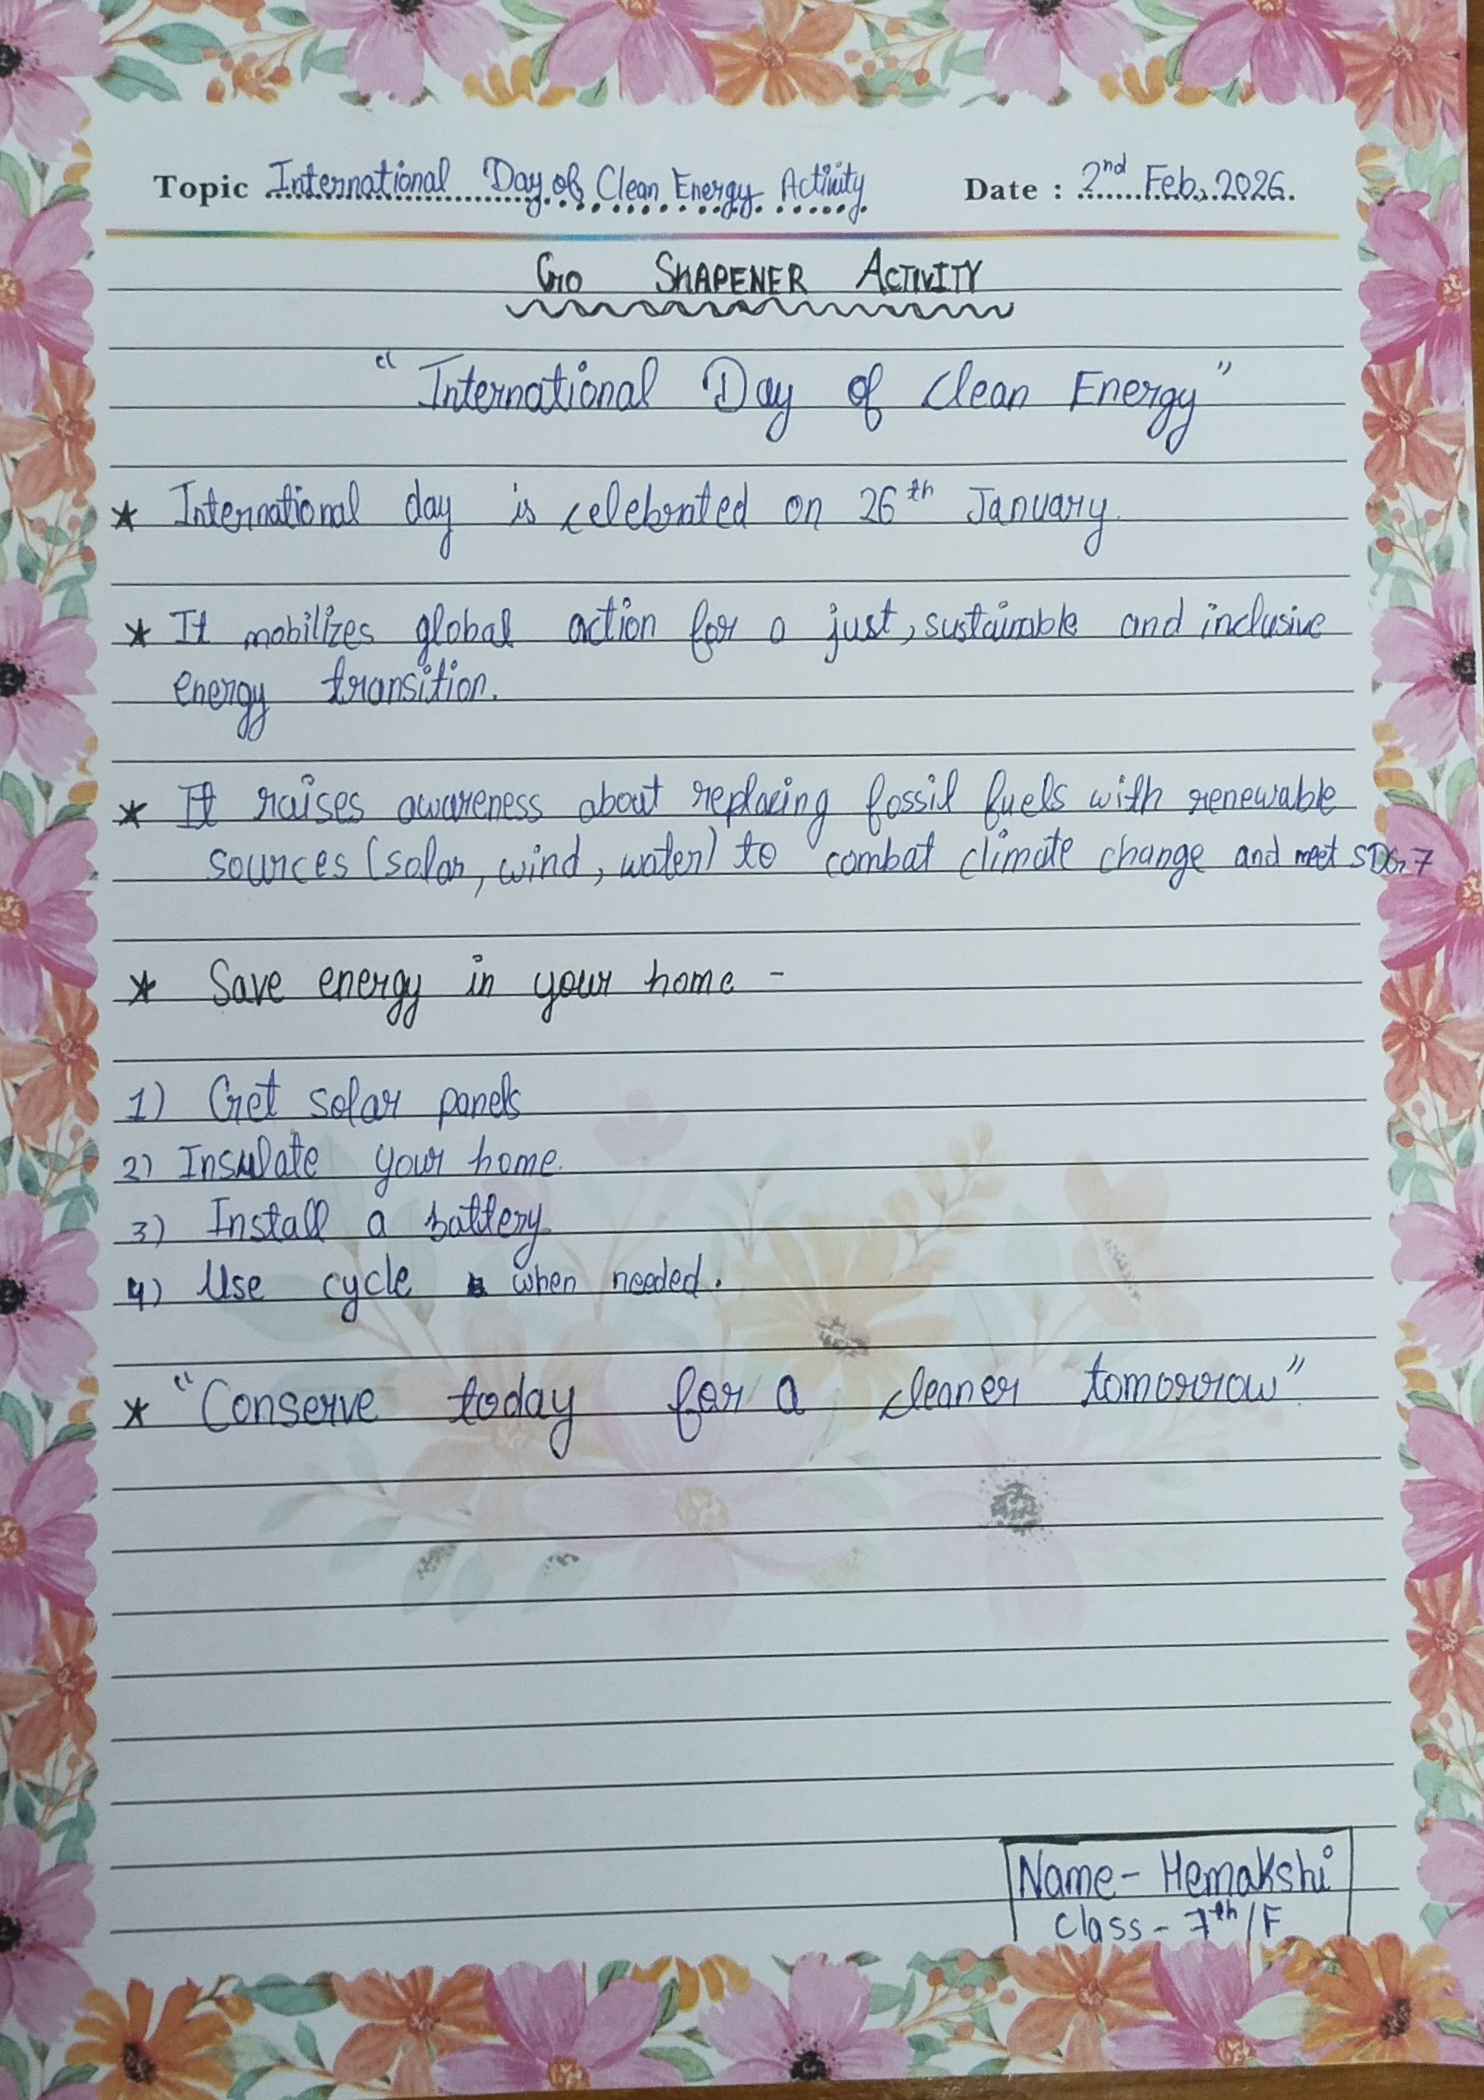 Topic International Day of Clean Energy Activity Date : 2nd Feb, 2026.
GO SHAPENER ACTIVITY
"International Day of Clean Energy"
* International day is celebrated on 26th January.
* It mobilizes global action for a just, sustainable and inclusive
energy transition.
* It raises awareness about replacing fossil fuels with renewable
sources (solar, wind, water) to combat climate change and meet SDG 7
* Save energy in your home -
1) Get solar panels
2) Insulate your home.
3) Install a battery.
4) Use cycle when needed.
* "Conserve today for a cleaner tomorrow"
Name - Hemakshi
Class - 7th/F